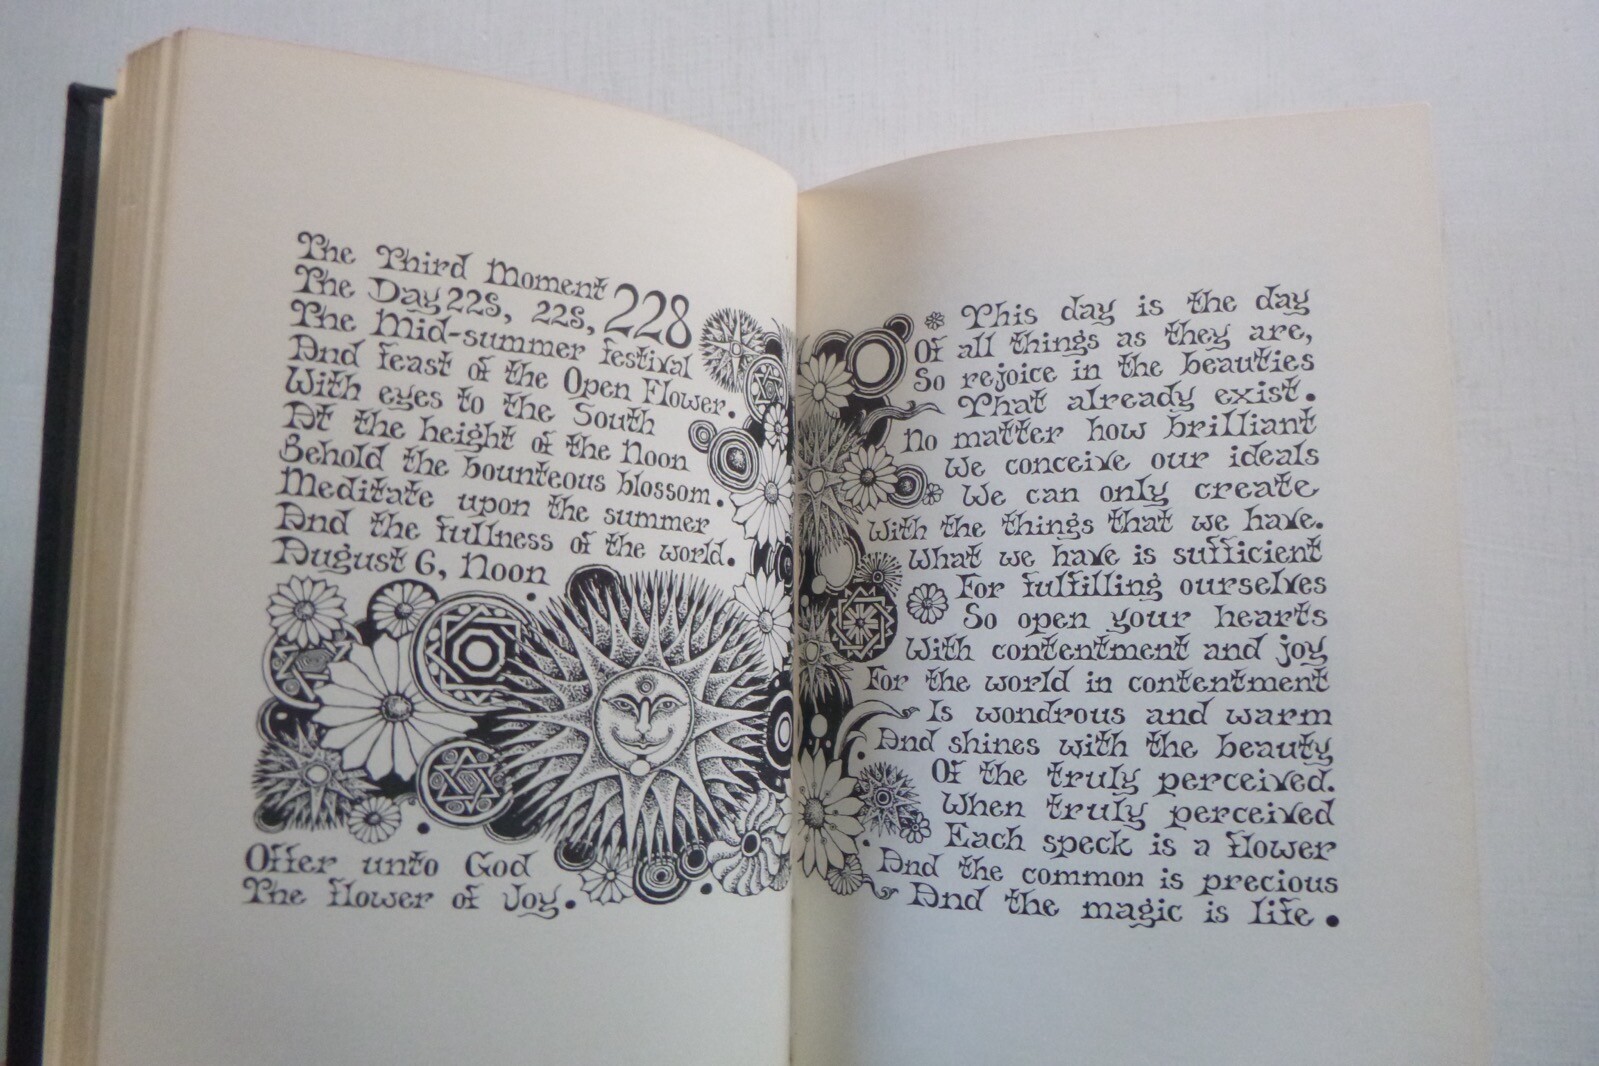 The Third Moment
The Day 228, 228, 228
The Mid-summer festival
And feast of the Open Flower.
With eyes to the South
At the height of the Noon
Behold the bounteous blossom.
Meditate upon the summer
And the fullness of the world.
August 6, Noon
Offer unto God
The flower of Joy.
This day is the day
Of all things as they are,
So rejoice in the beauties
That already exist.
No matter how brilliant
We conceive our ideals
We can only create
With the things that we have.
What we have is sufficient
For fulfilling ourselves
So open your hearts
With contentment and joy
For the world in contentment
Is wondrous and warm
And shines with the beauty
Of the truly perceived.
When truly perceived
Each speck is a flower
And the common is precious
And the magic is life.